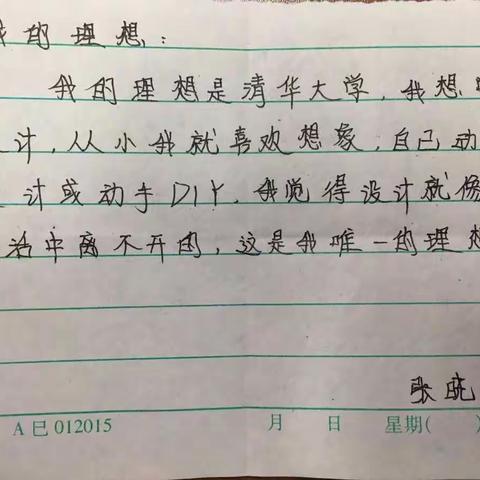 的理想:
我的理想是清华大学,我想
计,从小我就喜欢想象,自己动
计或动手DIY.我觉得设计就像
活中离不开的,这是我唯一的理想
张
A已 012015 月 日 星期( )